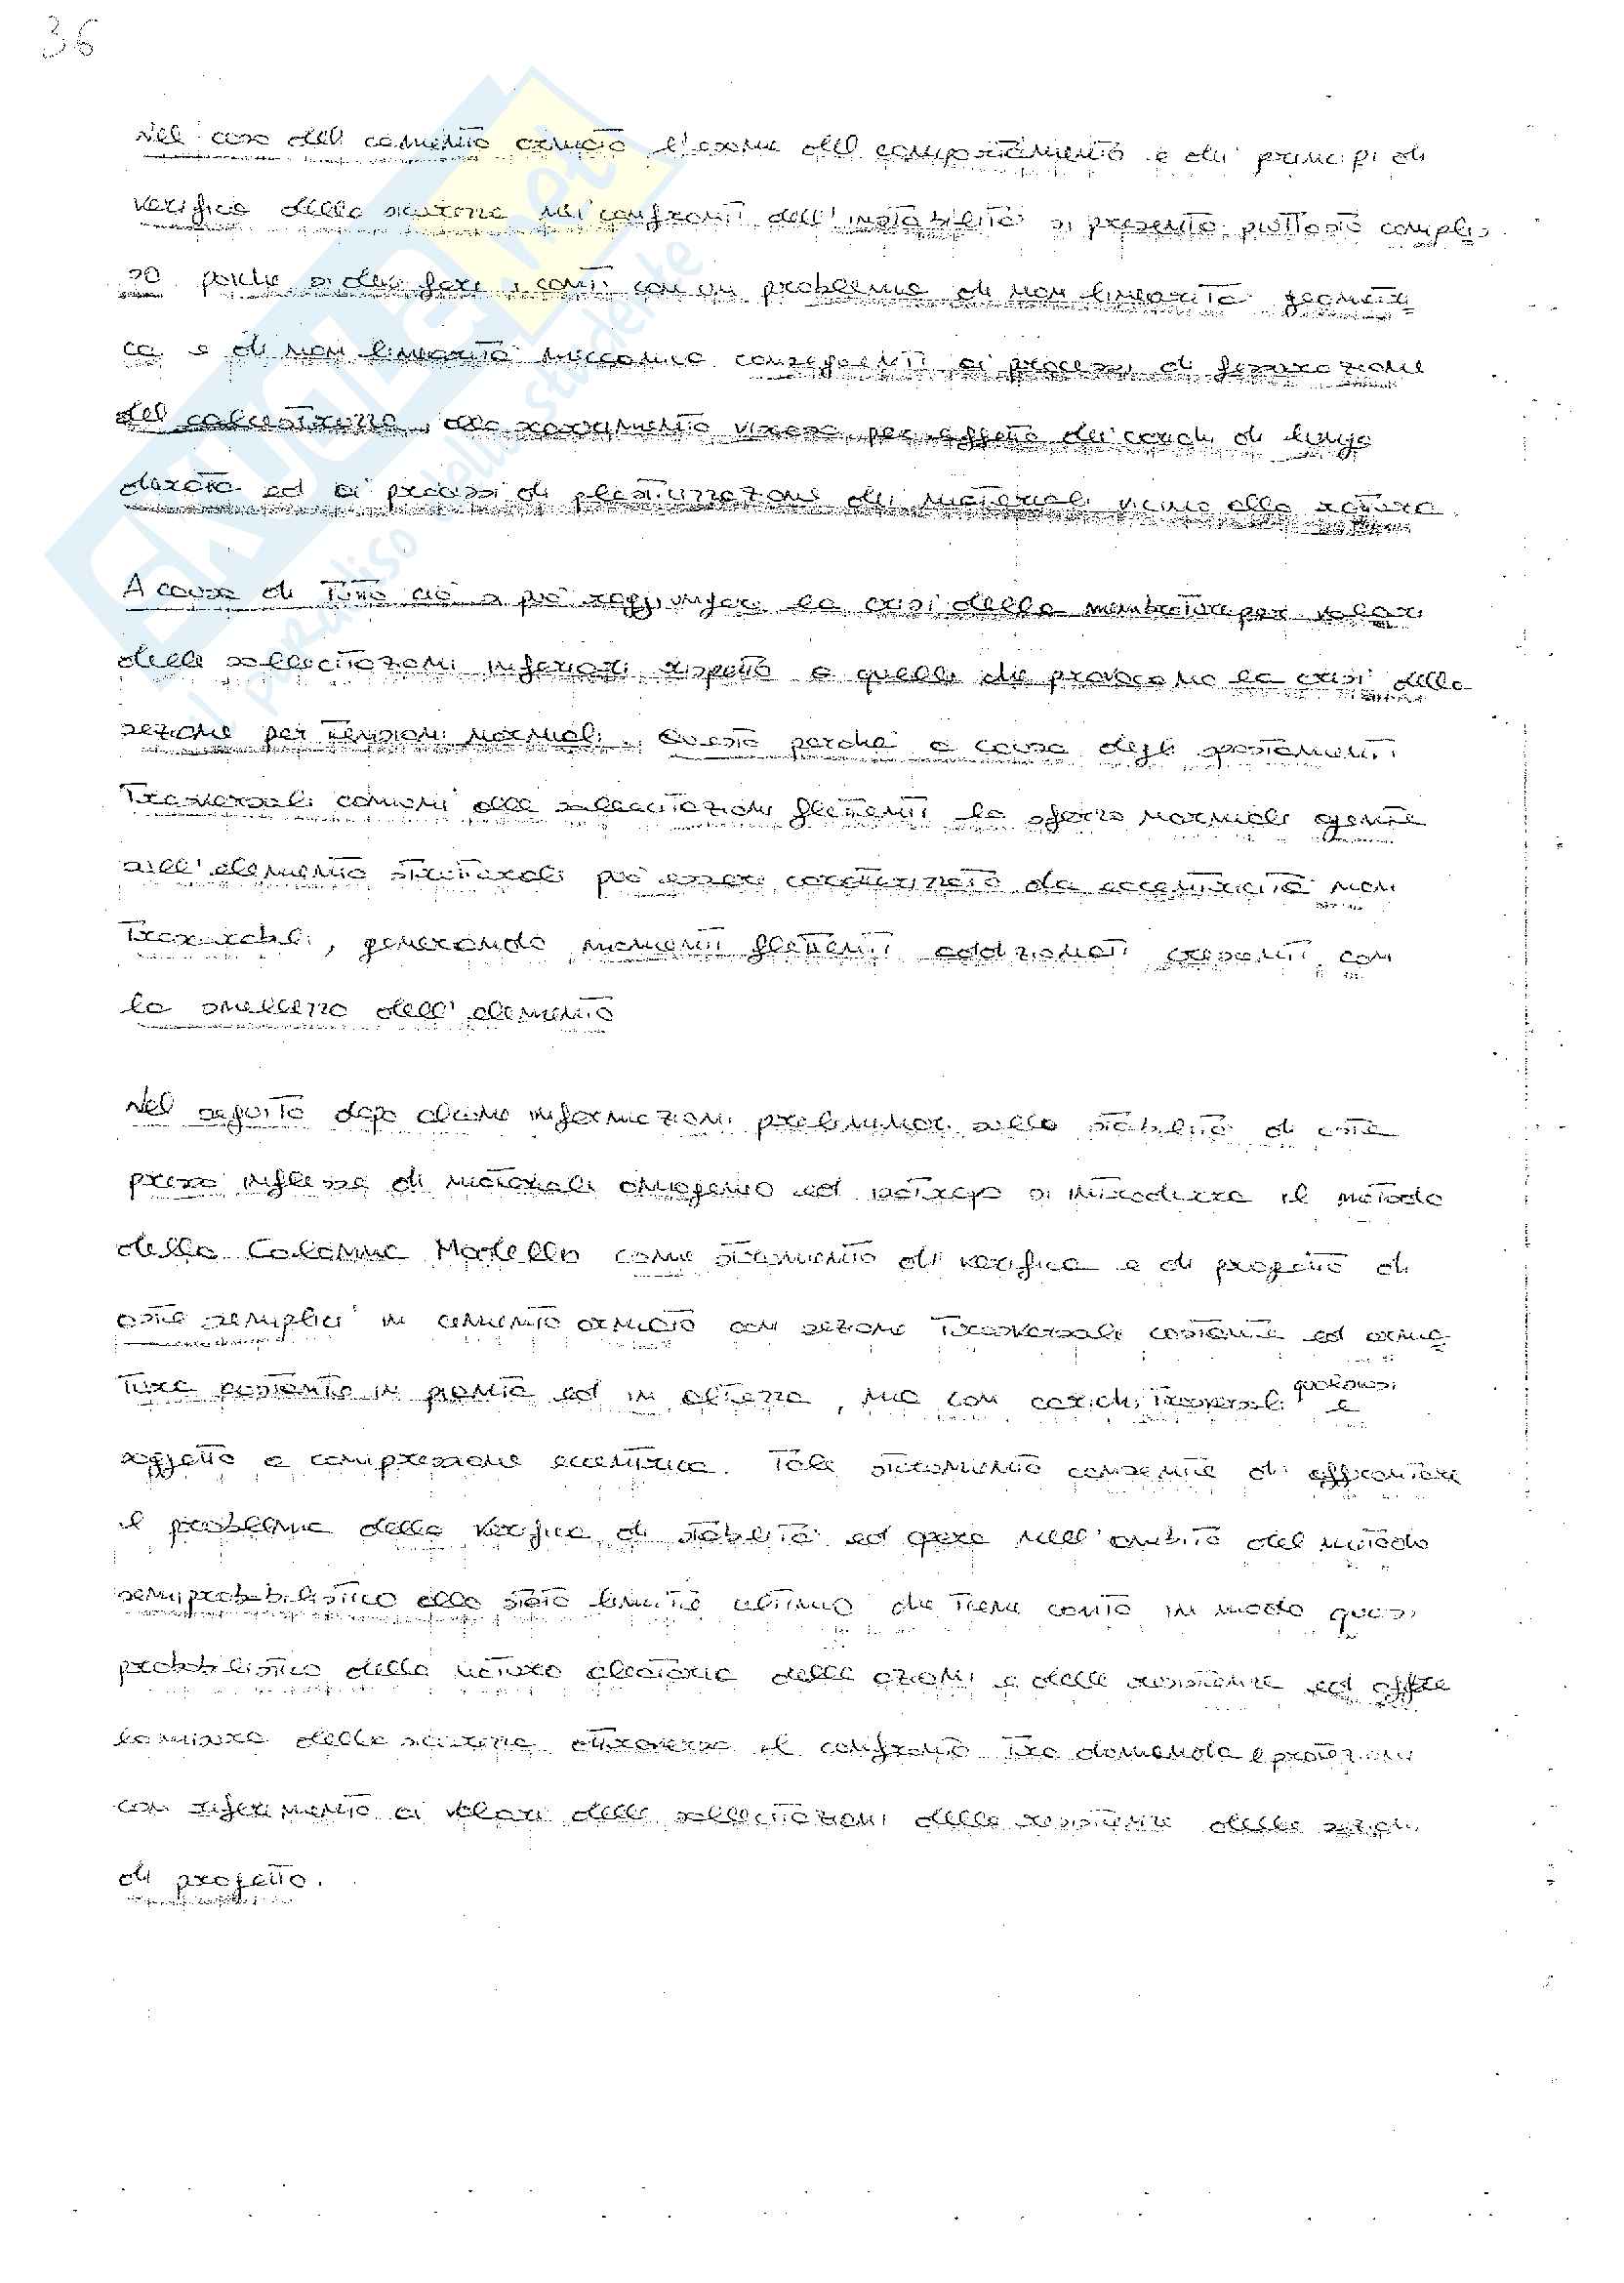 36
Nel caso del cemento armato l'esame del comportamento e dei principi di
verifica della sicurezza nei confronti dell'instabilità si presenta piuttosto comples
so poiche si devi fare i conti con un problema di non linearità geometri
ca e di non linearità meccanica conseguenti ai processi di fessurazione
del calcestruzzo, allo scorrimento viscoso per effetto dei carichi di lunga
durata ed ai processi di plasticizzazione dei materiali vicino alla rottura.
A causa di tutto ciò si può raggiungere la crisi della membratura per valori
delle sollecitazioni inferiori rispetto a quelli che provocano la crisi della
sezione per tensioni normali. Questo perchè a causa degli spostamenti
trasversali connessi alle sollecitazioni flettenti lo sforzo normale agente
sull'elemento strutturale può essere caratterizzato da eccentricità non
trascurabili, generando momenti flettenti addizionali crescenti con
la snellezza dell'elemento
Nel seguito dopo alcune informazioni preliminari sulla stabilità di aste
presso inflesse di materiale omogeneo ed isotropo si introdurra il metodo
della Colonna Modello come strumento di verifica e di progetto di
aste semplici in cemento armato con sezione trasversale costante ed arma
tura costante in pianta ed in altezza, ma con carichi trasversali qualsiasi e
soggetta a compressione eccentrica. Tale strumento consente di affrontare
il problema della verifica di stabilità ed opera nell'ambito del metodo
semiprobabilistico allo stato limite ultimo che tiene conto in modo quasi
probabilistico della natura aleatoria delle azioni e delle resistenze ed offre
la misura della sicurezza attraverso il confronto tra domanda e protezioni
con riferimento ai valori delle sollecitazioni delle resistenze delle sezioni
di progetto.
Skuola.net
il paradiso dello studente